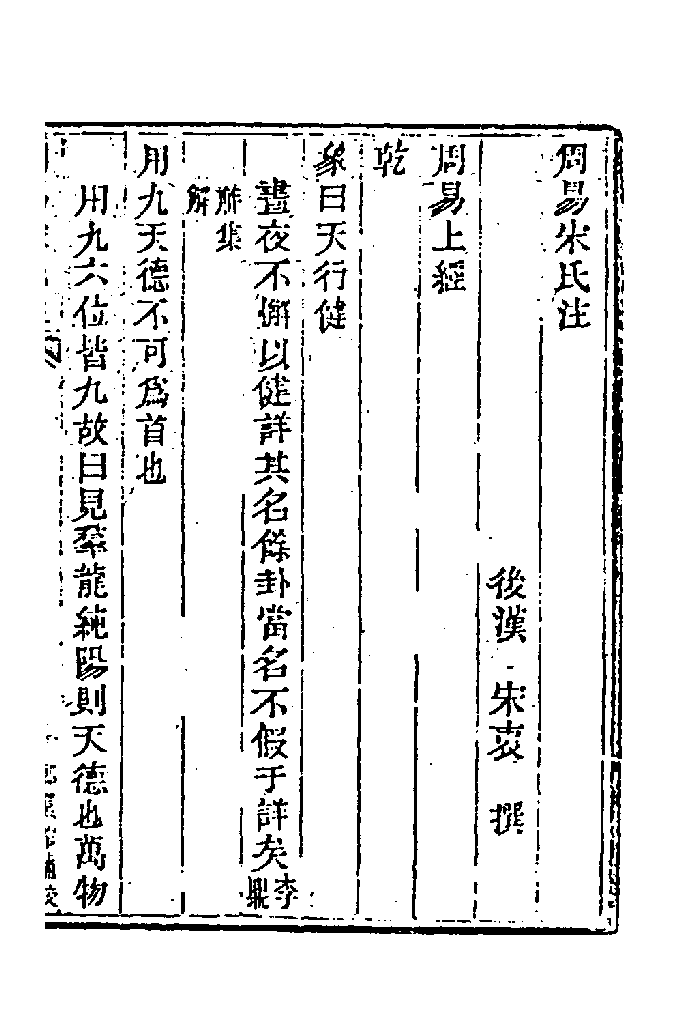 周易宋氏注
後漢 宋衷 撰
周易上經
乾
象曰天行健
晝夜不懈以健詳其名餘卦當名不假于詳矣李鼎
祚集解
用九天德不可爲首也
用九六位皆九故曰見羣龍純陽則天德也萬物